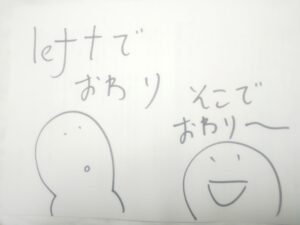 leftで
おわり
そこで
おわり〜